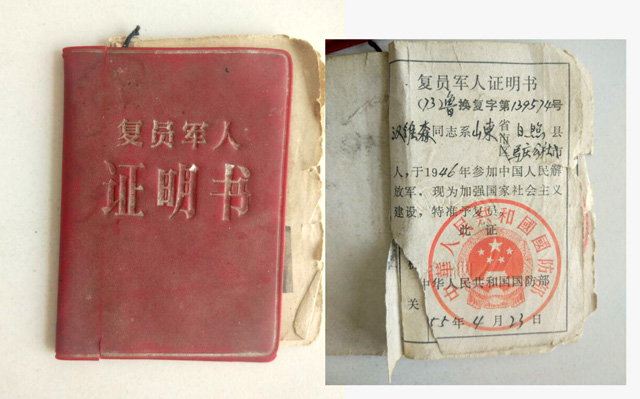 复员军人
证明书
复员军人证明书
(73)鲁换复字第139574号
汉维森同志系山东省日照县
区
市
人,于1946年参加中国人民解
放军,现为加强国家社会主义
建设,特准予复员。
此证
中华人民共和国国防部
中华人民共和国国防部
关
55年4月23日